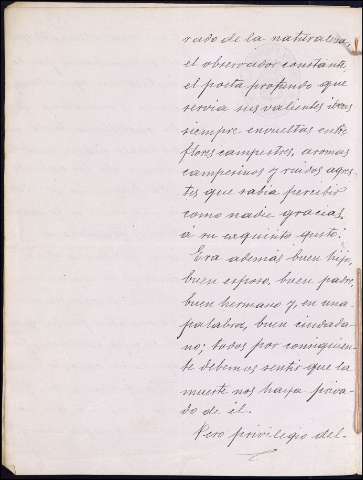 rado de la naturaleza,
el observador constante
el poeta profundo que
servia sus valientes ideas
siempre envueltas entre
flores campestres, aromas
campesinos y ruidos agres-
tes que sabia percibir
como nadie gracias,
á su exquisito gusto.
Era además buen hijo,
buen esposo, buen padre,
buen hermano y, en una
palabra, buen ciudada-
no; todos por consiguien-
te debemos sentir que la
muerte nos haya priva-
do de él.
Pero privilegio del-